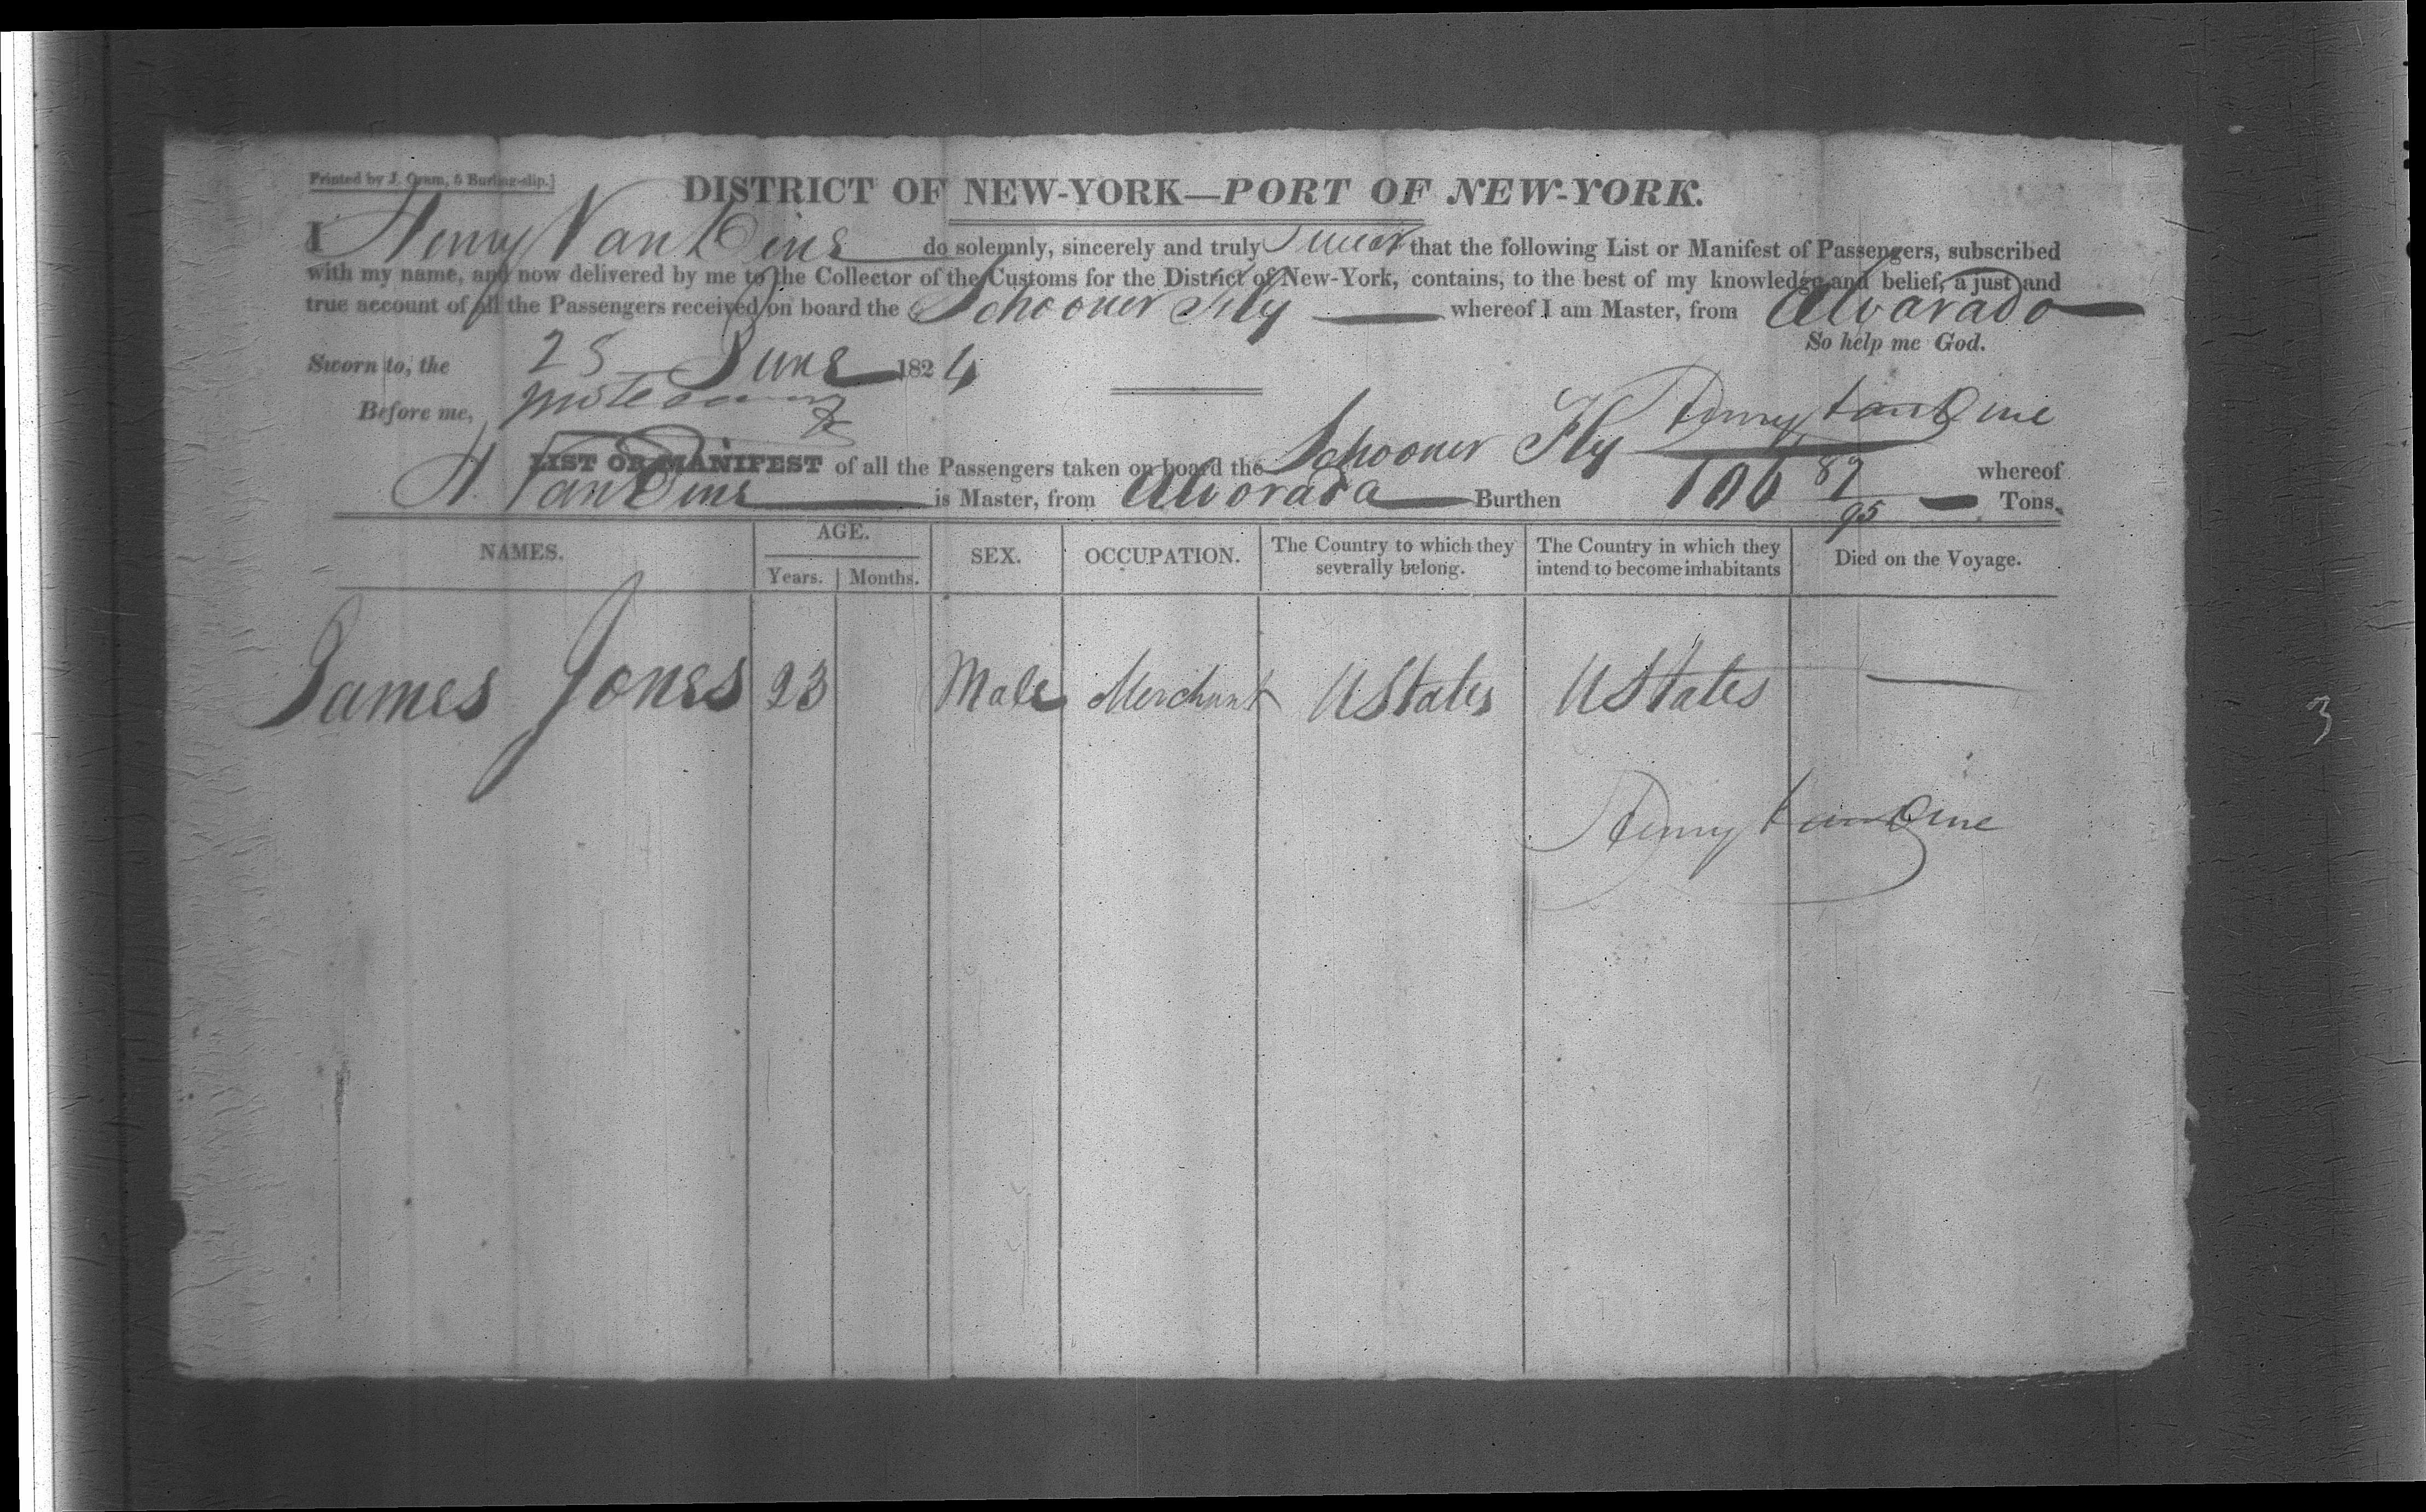 Printed by J. Oram, 5 Burling-slip.]
DISTRICT OF NEW-YORK—PORT OF NEW-YORK.
I Henry Van Dine do solemnly, sincerely and truly Swear that the following List or Manifest of Passengers, subscribed
with my name, and now delivered by me to the Collector of the Customs for the District of New-York, contains, to the best of my knowledge and belief, a just and
true account of all the Passengers received on board the Schooner Fly whereof I am Master, from Alvarado
So help me God.
Sworn to, the 25 June 1824
Before me,
Henry Van Dine
LIST OR MANIFEST of all the Passengers taken on board the Schooner Fly whereof
H. Van Dine is Master, from Alvorada Burthen 106 87/95 Tons.
NAMES. AGE. SEX. OCCUPATION. The Country to which they severally belong. The Country in which they intend to become inhabitants Died on the Voyage.
Years. Months.
James Jones 23 Male Merchant UStates UStates —
Henry Van Dine
3